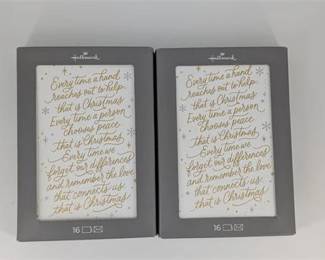 Hallmark
Every time a hand
reaches out to help
that is Christmas
Every time a person
chooses peace
that is Christmas
Every time we
forget our differences
and remember the love
that connects us
that is Christmas
16
Hallmark
Every time a hand
reaches out to help
that is Christmas
Every time a person
chooses peace
that is Christmas
Every time we
forget our differences
and remember the love
that connects us
that is Christmas
16